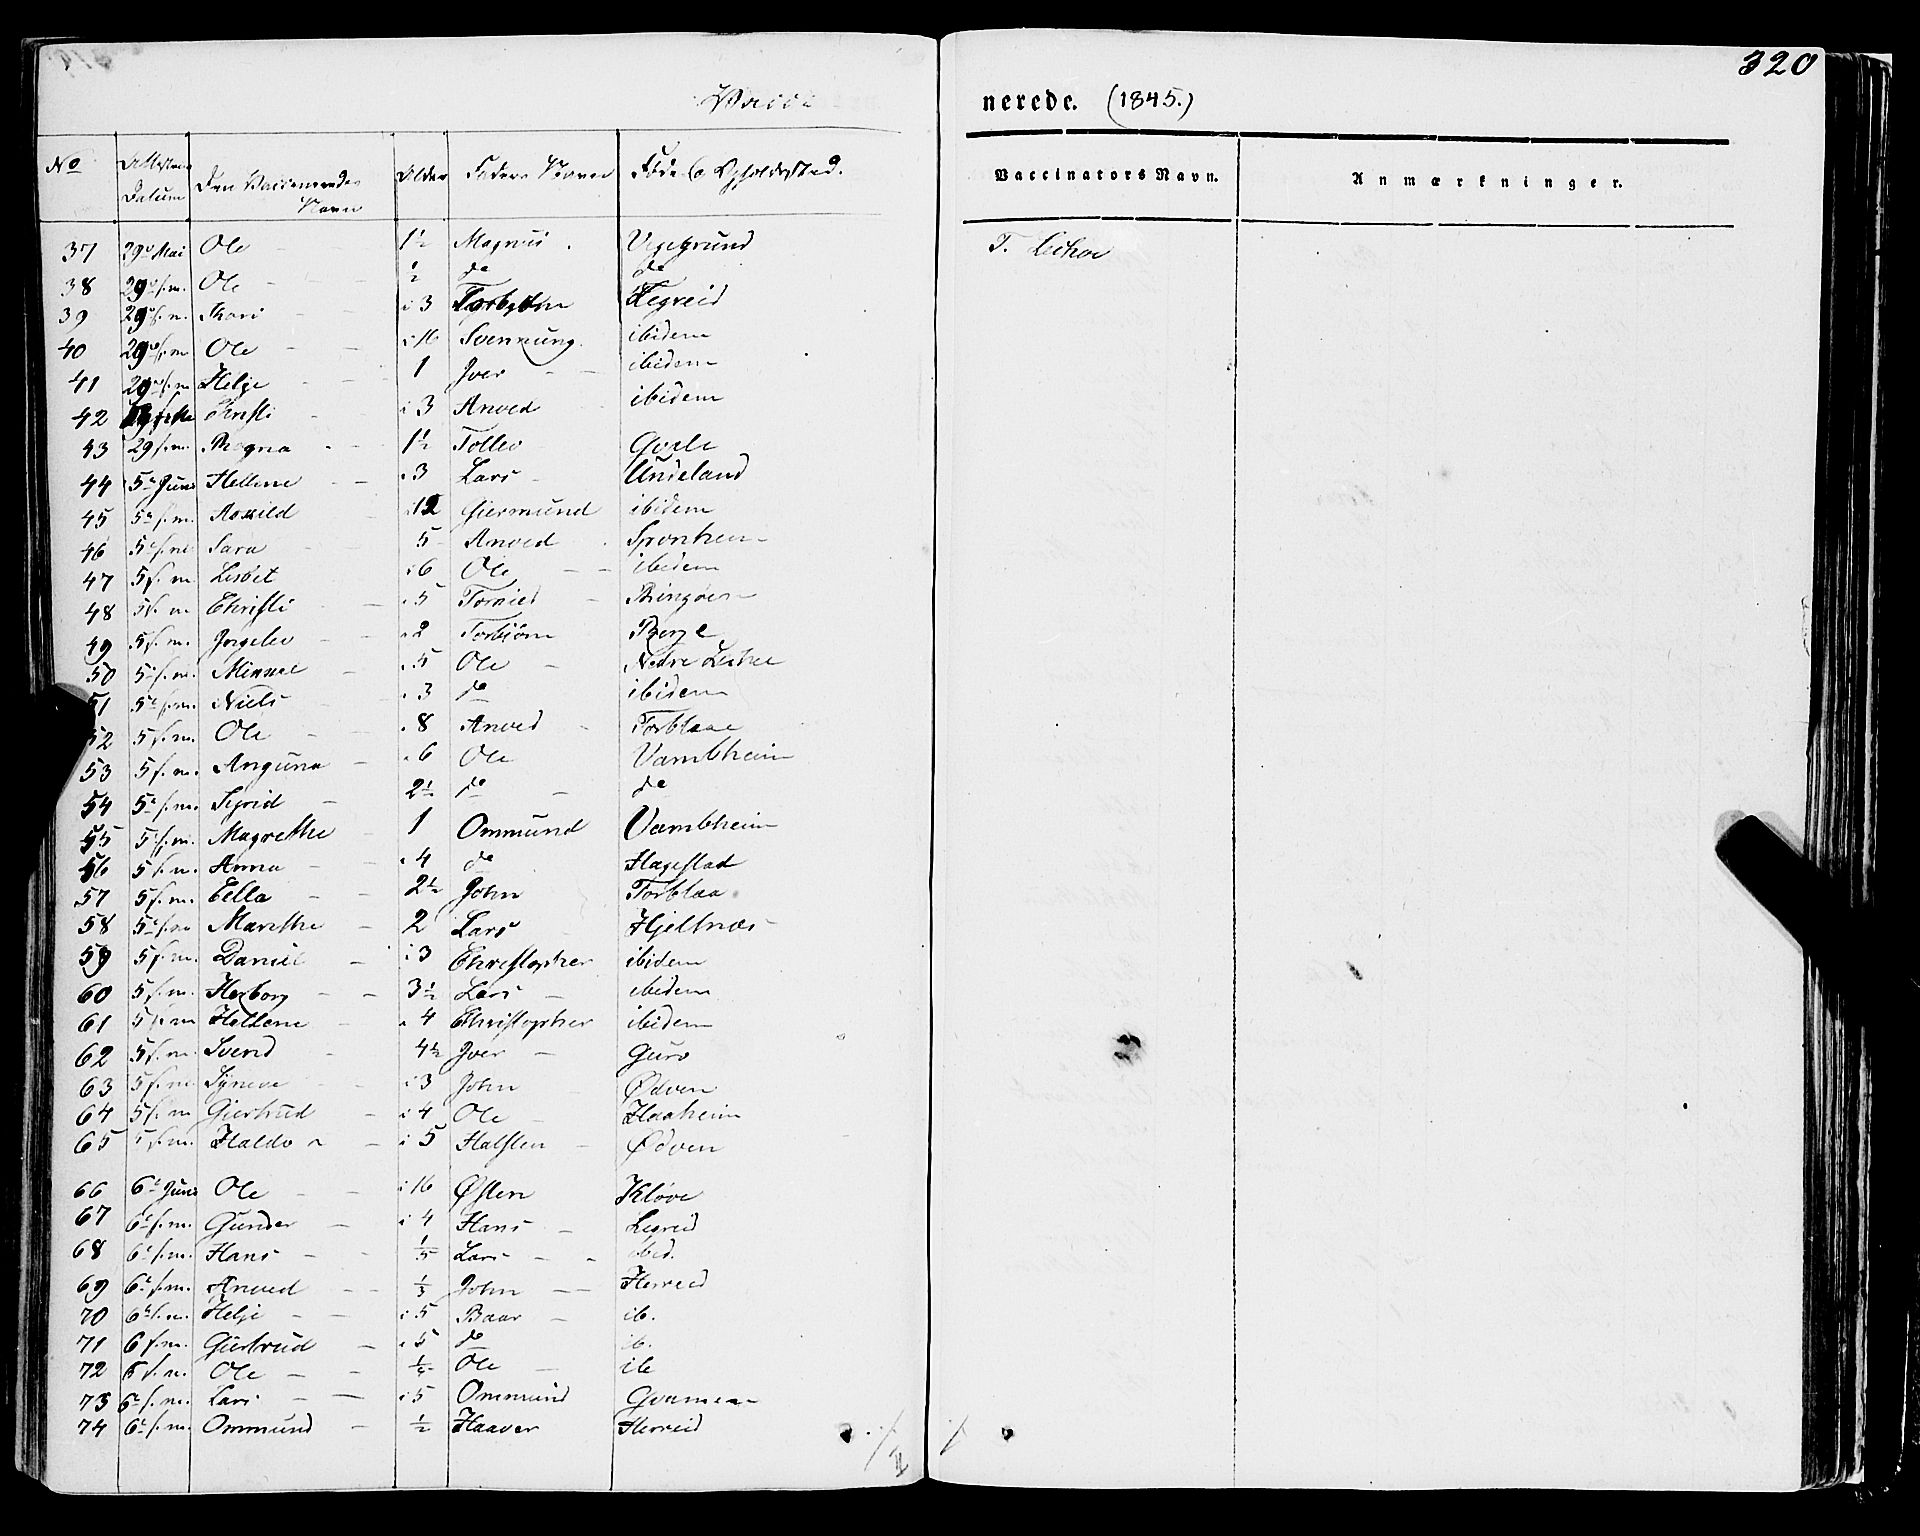 320
nerede. (1845.)
No Datum Den Vaccineredes Navn Alder Faders Navn Føde & Opholdssted.
Vaccinators Navn. Anmærkninger.
37 29 Mai Ole 1½ Magnus Vegegrund T. Leikve
38 29 s.m. Ole ½ do do
39 29 s.m. i 3 Torbjörn Legreid
40 29 s.m. Ole i 16 Svennung ibidem
41 29 s.m. Helje 1 Iver ibidem
42 Christi i 3 Anved ibidem
43 29 s.m. Magna 1½ Tollev Qvale
44 5 Juni Hellene 3 Lars Undeland
45 5 s.m. 12 Giermund ibidem
46 5 s.m. Sara 5 Anved Sponhem
47 5 s.m. Lisbet i 6 Ole ibidem
48 5 s.m. Christi 5 Ringøen
49 5 s.m. Ingelev 2 Torbiörn Berge
50 5 s.m. Mikkel 5 Ole Nedre Leikve
51 5 s.m. Niels 3 do ibidem
52 5 s.m. Ole 8 Anved Torblaae
53 5 s.m. Anguna 6 Ole Vambheim
54 5 s.m. Sigrid 2½ do do
55 5 s.m. Magrethe 1 Ommund Vambheim
56 5 s.m. Anna 4 do Hagestad
57 5 s.m. Eella 2½ John Torblaa
58 5 s.m. Marethe 2 Lars Hjeltnæs
59 5 s.m. Daniel i 3 Christopher ibidem
60 5 s.m. Herborg 3½ Lars ibidem
61 5 s.m. Hellene 4 Christopher ibidem
62 5 s.m. Svend 4½ Iver Guro
63 5 s.m. Syneve i 3 John Ødven
64 5 s.m. Giertrud i 4 Ole Haaheim
65 5 s.m. Haldor i 5 Halsten Ødven
66 6 Juni Ole i 16 Østen Kløve
67 6 s.m. Gunder i 4 Hans Legreid
68 6 s.m. Hans 1/5 Lars ibid.
69 6 s.m. Anved 1/3 John Herreid
70 6 s.m. Helje i 5 Baar ib.
71 6 s.m. Giertrud i 5 do ib.
72 6 s.m. Ole Ole ib
73 6 s.m. Lars i 5 Ommund Qvamen
74 6 s.m. Ommund ½ Haaver Herreid